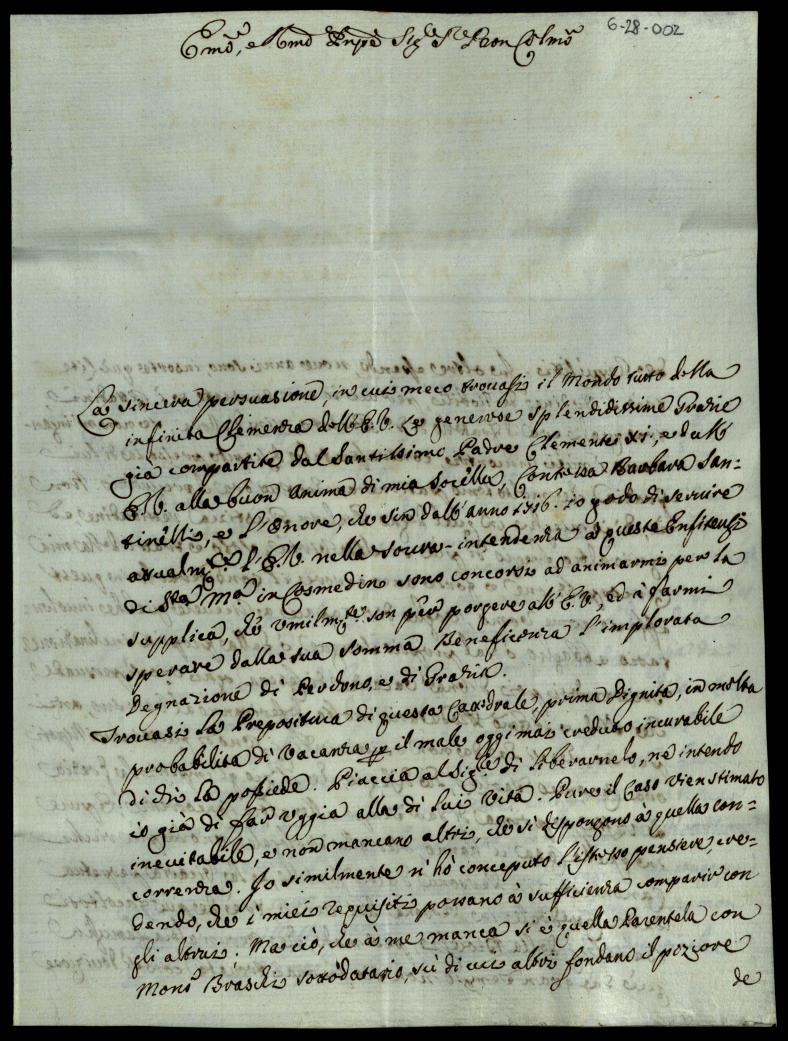 6-28-002
Emõ, e Rmõ Prñpe Sig.re S.re Pron Colmõ
La sincera persuasione, in cui meco trovasi il Mondo tutto della
infinita Clemenza dell'E.V. Le generose splendidissime Grazie
già compartite dal Santissimo Padre Clemente XI, e dall'
E.V. alla buon'Anima di mia Sorella, Contessa Barbara San-
tinelli, e l'Onore, che sin dall'anno 1716. io godo di servire
atualm.te l'E.V. nella sovra-intendenza à queste Enfiteusi
di S.ta M.a in Cosmedin sono concorsi ad animarmi per la
supplica, che umilm.te son per porgere all'E.V., ed à farmi
sperare dalla sua somma Beneficenza l'implorata
Degnazione di Perdono, e di Grazia.
Trovasi la Prepositura di questa Catedrale, prima Dignità, in molta
probabilità di vacanza per il male oggimai creduto incurabile
di chi la possiede. Piaccia al Sig.re di liberarnelo, nè intendo
io già di far uggia alla di lui vita. Pure il Caso vien stimato
inevitabile, e non mancano altri, che si dispongono à quella con=
correnza. Io similmente n'hò conceputo l'istesso pensiere, cre-
dendo, che i miei requisiti possano à sufficienza comparir con
gli altrui; Ma ciò, che à me manca si è quella Parentela con
Mons.r Braschi sottodatario, sù di cui altri fondano il peziore
de